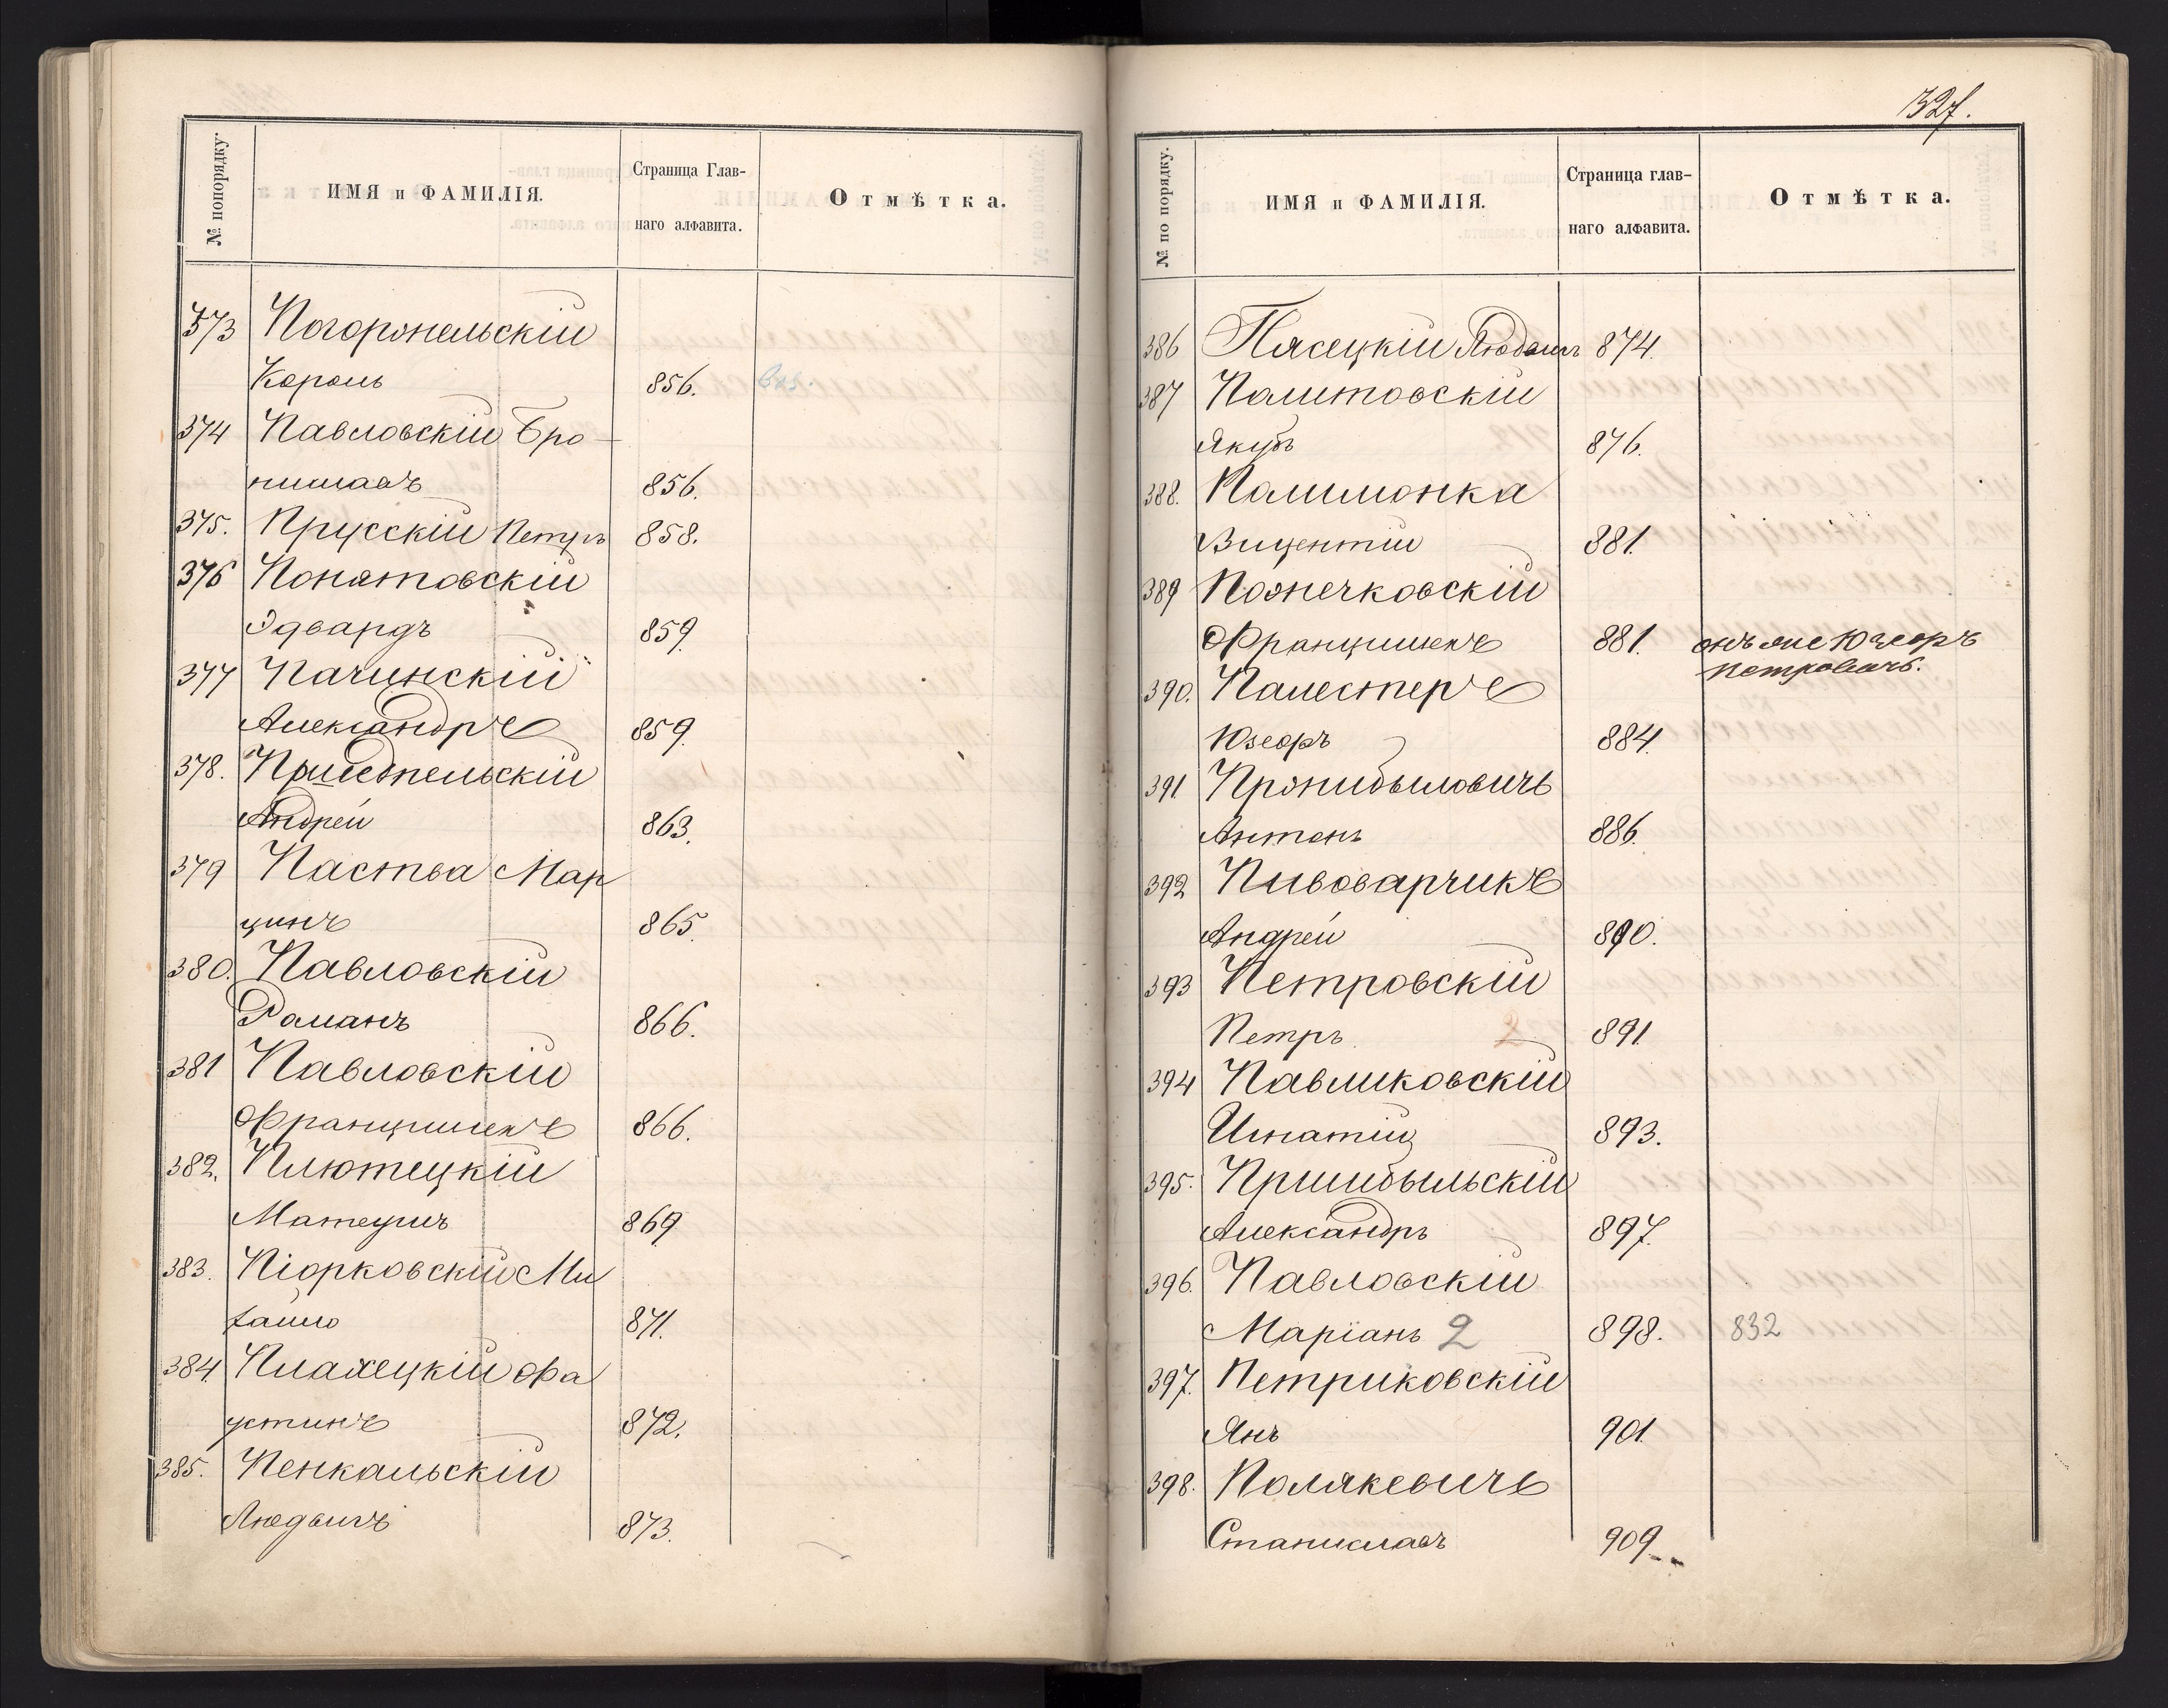 № попорядку
ИМЯ и ФАМИЛІЯ.
Страница Глав-
наго алфавита.
Отмѣтка.
373 Погоржельскій
Кароль 856.
374 Павловскій Бро-
ниславъ 856.
375. Прусскій Петръ 858.
376 Понятовскій
Эдвардъ 859.
377 Пачинскій
Александръ 859.
378.
Андрей 863.
379 Паства Мар
цинъ 865.
380. Павловскій
Романъ 866.
381 Павловскій
Францишекъ 866.
382. Плютецкій
Матеушъ 869.
383. Піорковскій Ми
хайло 871.
384. Плахецкій Фа
устинъ 872.
385. Пенкальскій
Людвигъ 873.
327.
№ по порядку.
ИМЯ и ФАМИЛІЯ.
Страница глав-
наго алфавита.
Отмѣтка.
386 Пясецкій Людвигъ 874.
387 Палитовскій
Якубъ 876.
388. Палимонка
Вицентій 881.
389 Пожечковскій
Францишекъ 881. онъ же Юзефъ
Петровичъ.
390. Палестеръ
Юзефъ 884.
391
Антонъ 886.
392 Пивоварчикъ
Андрей 890.
393 Петровскій
Петръ 2 891.
394 Павликовскій
Игнатій 893.
395. Пршибыльскій
Александръ 897.
396. Павловскій
Маріанъ 2 898. 832
397. Петриковскій
Янъ 901.
398. Полякевичъ
Станиславъ 909.